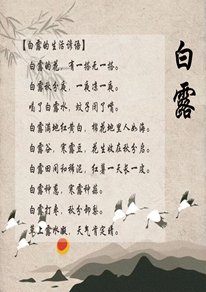 白露
【白露的生活谚语】
白露的花，有一搭无一搭。
白露秋分夜，一夜凉一夜。
喝了白露水，蚊子闭了嘴。
白露满地红黄白，棉花地里人如海。
白露谷，寒露豆，花生收在秋分后。
白露田间和稀泥，红薯一天长一皮。
白露种葱，寒露种蒜。
白露打枣，秋分卸梨。
草上露水凝，天气肯定晴。